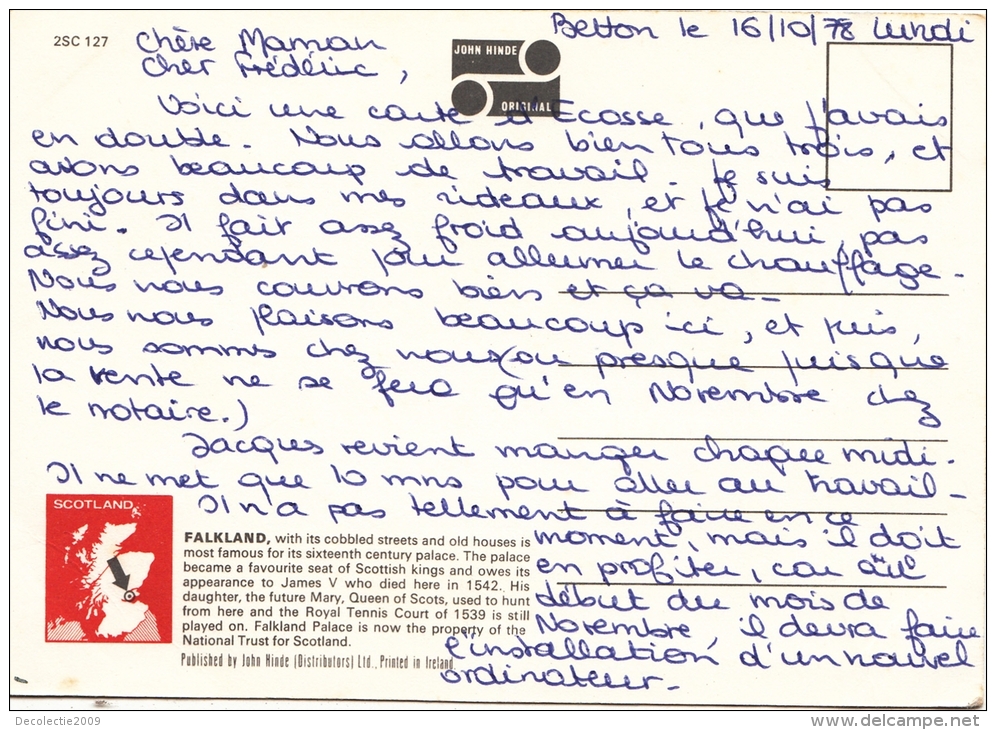 Betton le 16/10/78 lundi
2SC 127
Chère Maman
Cher Frédéric,
JOHN HINDE
ORIGINAL
Voici une carte d'Ecosse, que j'avais
en double. Nous allons bien tous trois, et
avons beaucoup de travail - Je suis
toujours dans mes rideaux, et je n'ai pas
fini. Il fait assez froid aujourd'hui, pas
assez cependant pour allumer le chauffage -
Nous nous couvrons bien et ça va -
Nous nous plaisons beaucoup ici, et puis,
nous sommes chez nous (ou presque puisque
la vente ne se fera qu'en Novembre chez
le notaire.)
Jacques revient manger chaque midi -
Il ne met que 10 mns pour aller au travail -
Il n'a pas tellement à faire en ce
moment, mais il doit
en profiter, car au
début du mois de
Novembre, il devra faire
l'installation d'un nouvel
ordinateur -
SCOTLAND
FALKLAND, with its cobbled streets and old houses is
most famous for its sixteenth century palace. The palace
became a favourite seat of Scottish kings and owes its
appearance to James V who died here in 1542. His
daughter, the future Mary, Queen of Scots, used to hunt
from here and the Royal Tennis Court of 1539 is still
played on. Falkland Palace is now the property of the
National Trust for Scotland.
Published by John Hinde (Distributors) Ltd., Printed in Ireland.
Decolectie2009
delcampe.net